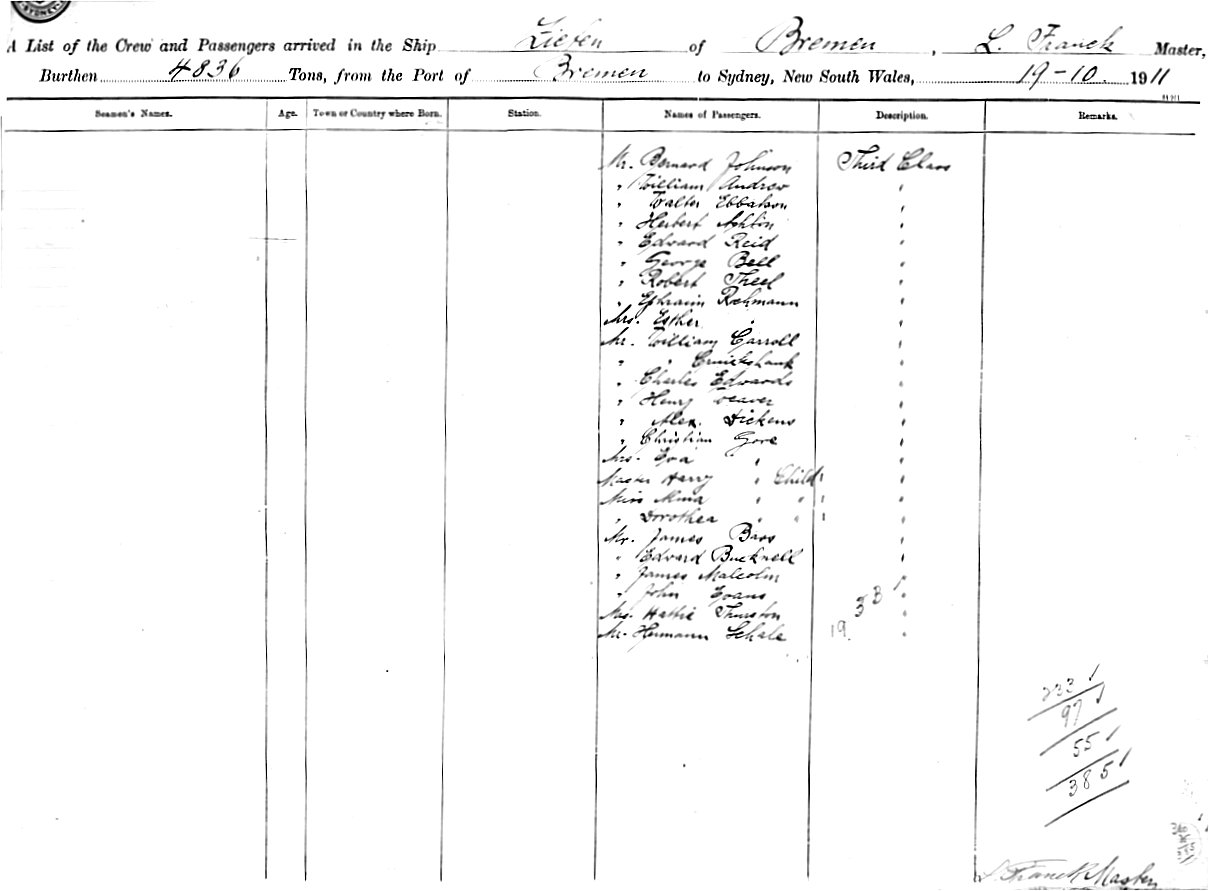 SYDNEY
A List of the Crew and Passengers arrived in the Ship Zieten of Bremen, L. Franck Master,
Burthen 4836 Tons, from the Port of Bremen to Sydney, New South Wales, 19-10. 1911
Seamen's Names. Age. Town or Country where Born. Station. Names of Passengers. Description. Remarks.
Mr. Bernard Johnson Third Class
" William Andrew "
" Walter Ebbatson "
" Herbert Ashton "
" Edward Reid "
" George Bell "
" Robert Theel "
" Ephraim Rochmann "
Mrs. Esther " "
Mr. William Carroll "
" " Cruikshank "
" Charles Edwards "
" Henry Weaver "
" Alex. Dickens "
" Christian Gore "
Mrs. Eva " "
Master Harry " Child 1 "
Miss Mina " " 1 "
" Dorothea " " 1 "
Mr. James Bass "
" Edward Bucknell "
" James Malcolm "
" John Evans "
Mrs. Hattie Thurston "
Mr. Hermann Schale 19. "
233 ✓
97 ✓
55 ✓
385 ✓
L. Franck Master